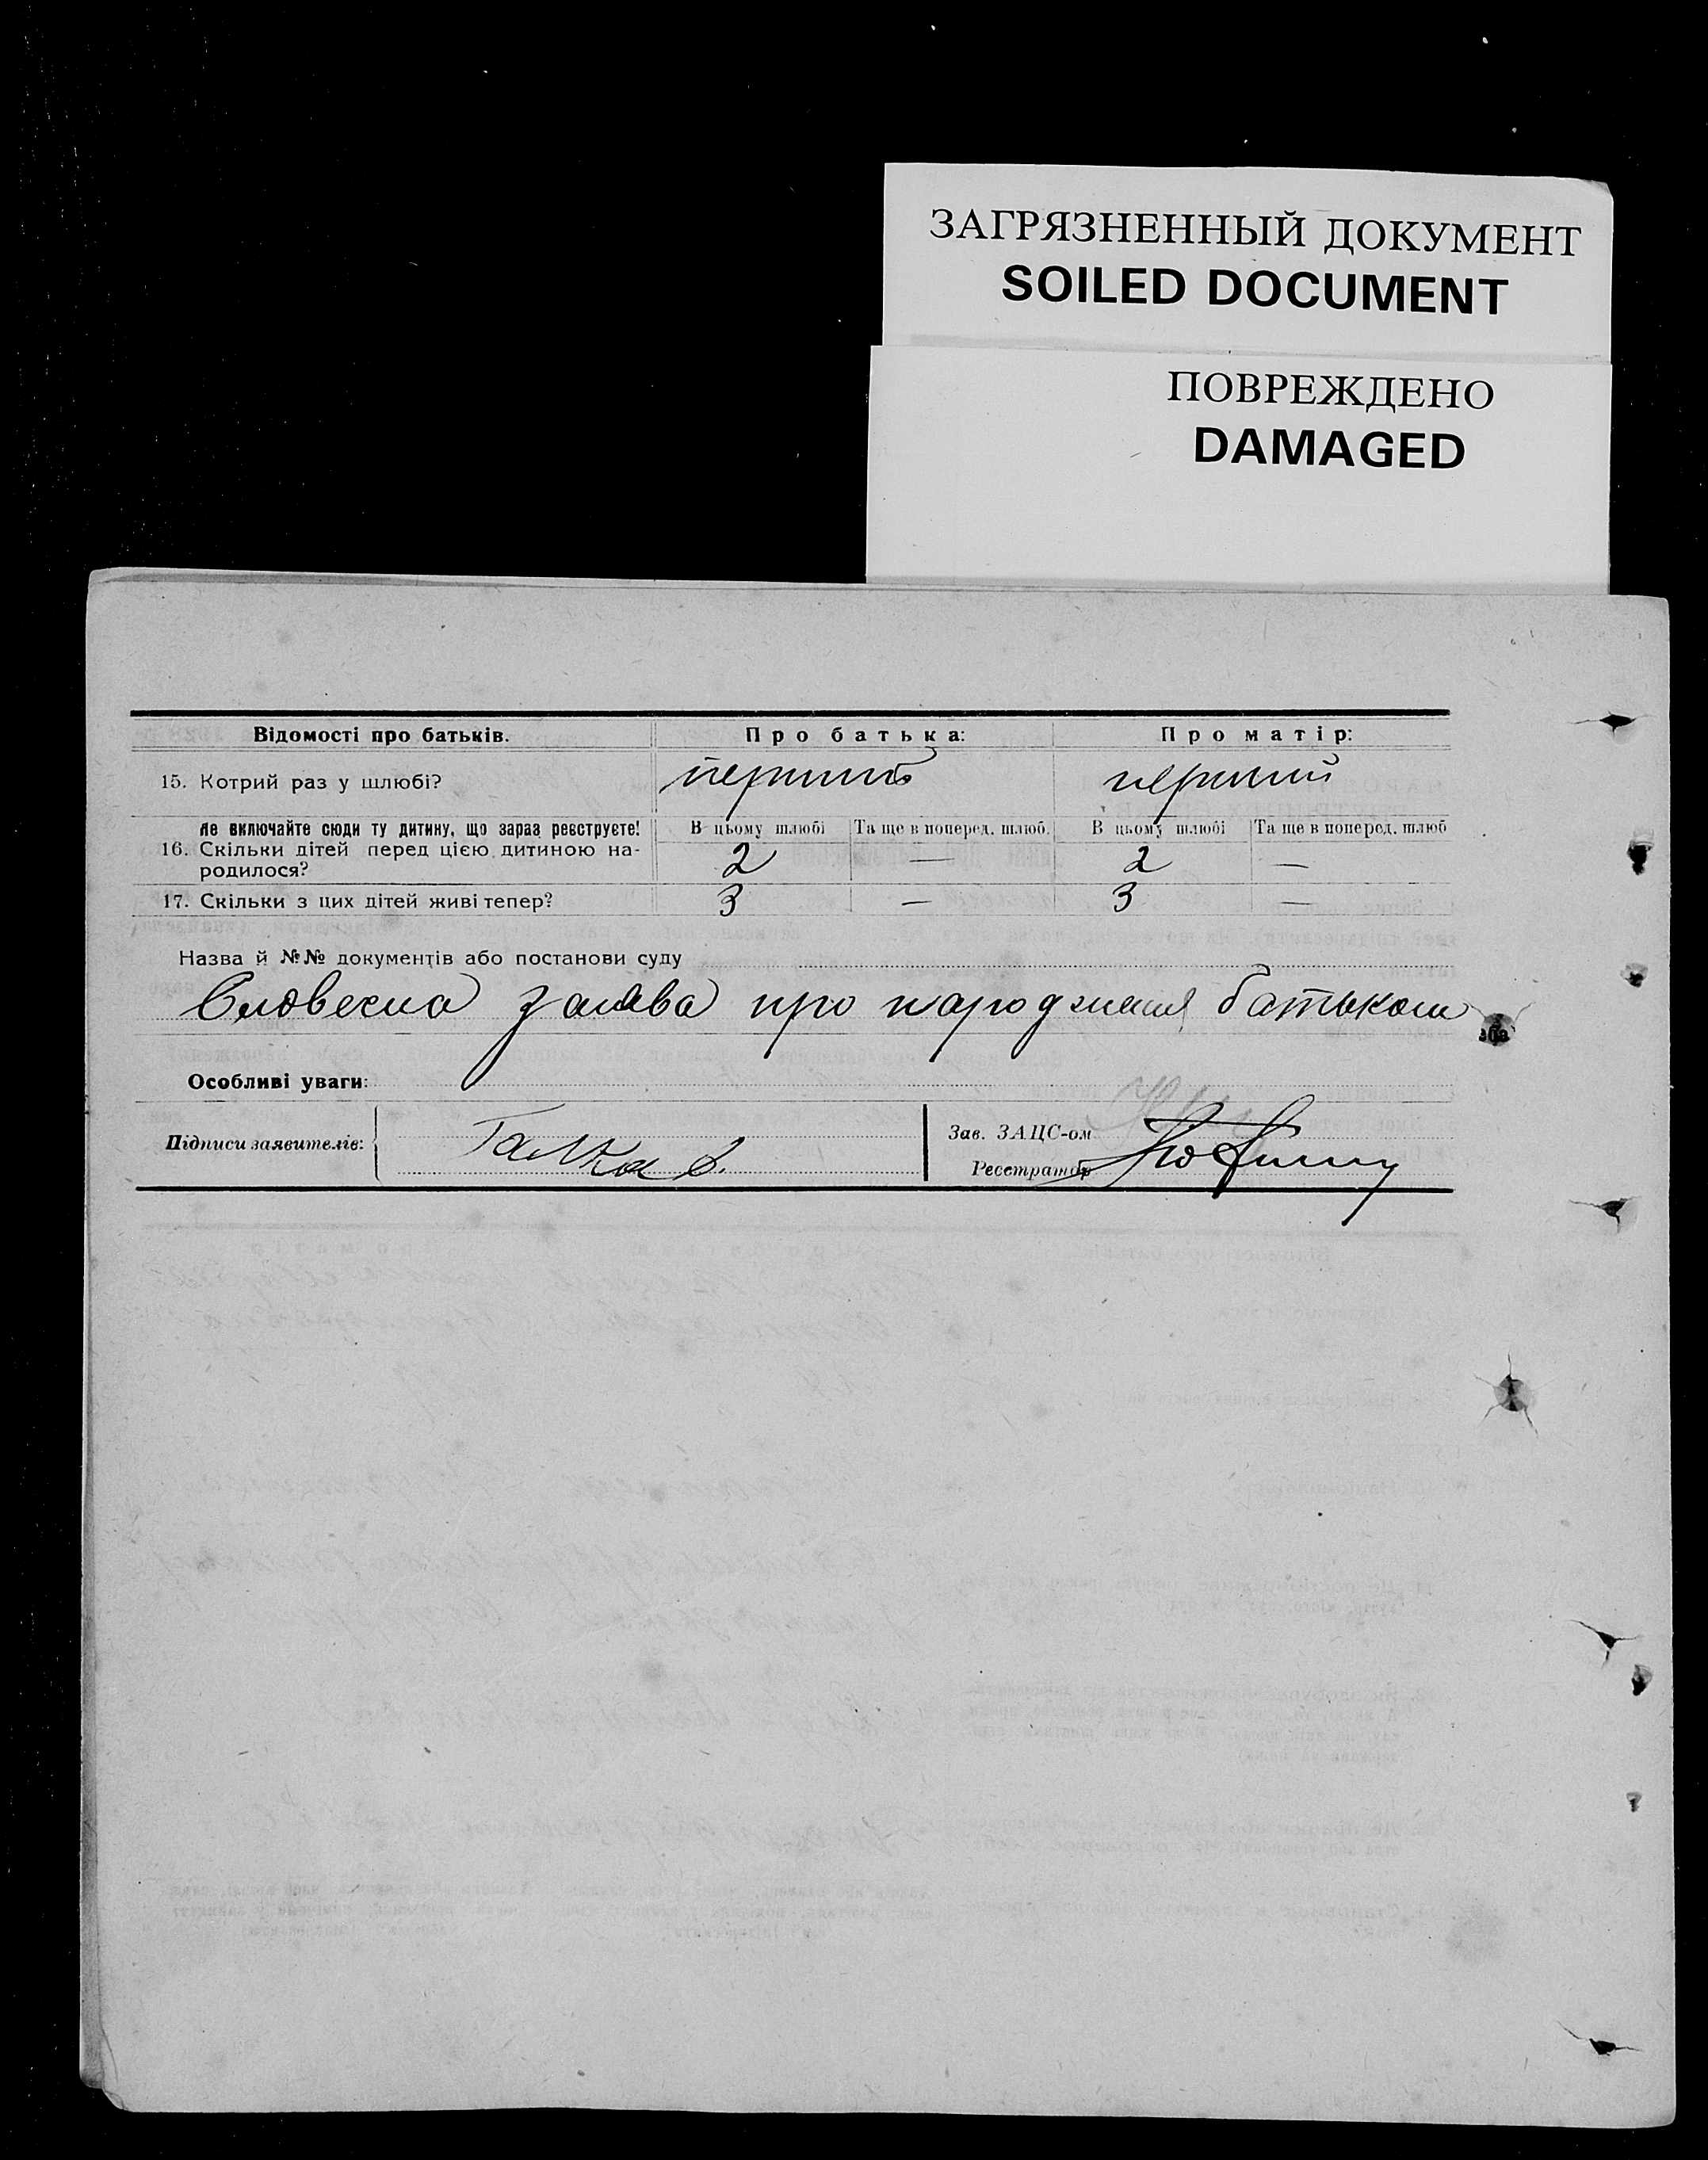 ЗАГРЯЗНЕННЫЙ ДОКУМЕНТ
SOILED DOCUMENT
ПОВРЕЖДЕНО
DAMAGED
Відомості про батьків. Про батька: Про матір:
15. Котрий раз у шлюбі? перший перший
Не включайте сюди ту дитину, що зараз реєструєте! В цьому шлюбі Та ще в поперед. шлюб. В цьому шлюбі Та ще в поперед. шлюб
16. Скільки дітей перед цією дитиною на- 2 — 2 —
родилося?
17. Скільки з цих дітей живі тепер? 3 — 3 —
Назва й №№ документів або постанови суду
Словесна заява про народження батьком
Особливі уваги:
Підписи заявителів: Галка
Зав. ЗАЦС-ом
Реєстратор